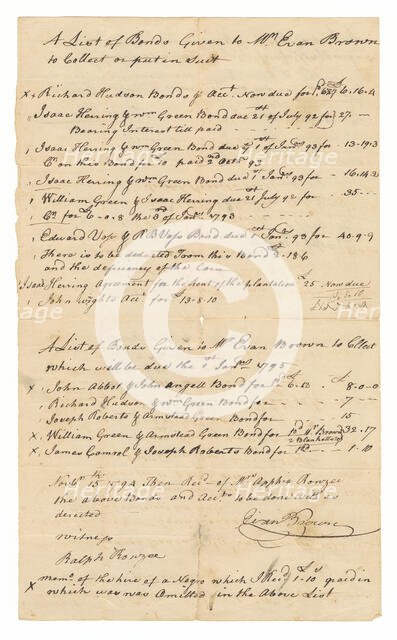 A List of Bonds Given to Mr Evan Brown
to Collect or put in Suit
x + Richard Hudson Bonds & Acct. Now due for 6.16.4
Isaac Herring & Wm Green Bond due 21st of July 92 for 27.--
Bearing Interest till paid
Isaac Herring & Wm Green Bond due 1st of Janr. 93 for 13.19.3
Cr on this Bond for 10 paid 2nd Octr 93
Isaac Herring & Wm Green Bond due 1 Janr. 93 for 16.14.3
William Green & Isaac Herring due 21st July 92 for 35 --
Cr for 6-0.8 the 3d of Janr. 1793
Edward Voss & R B Voss Bond due 1st Janr. 93 for 40-9-9
There is to be deducted from this Bond 2.19 6
and the depiciency of the Corn
Isaac Herring Agreement for the Rent of the plantation £25 Now due
John Wright Acct. for £13-8.10
A List of Bonds Given to Mr Evan Brown to Collect
which will be due the 1st Janry. 1795
x John Abbot & John Angell Bond for £8-0-0
Richard Hudson & Wm Green Bond for 7 --
Joseph Roberts & Armstead Green Bond for 15
x William Green & Armstead Green Bond for 32.17
2 Blankets
x James & Joseph Roberts Bond for 1-10
Novbr 15th 1794 Then Recd. of Mrs Sophia Rouzee
the above Bonds and Acct. to be done with as
directed
Evan Brown
Witness
Ralph Rouzee
x memo. of the hire of a Negro which I Recd £1-10 paid in
which was was Omitted in the Above List
Heritage